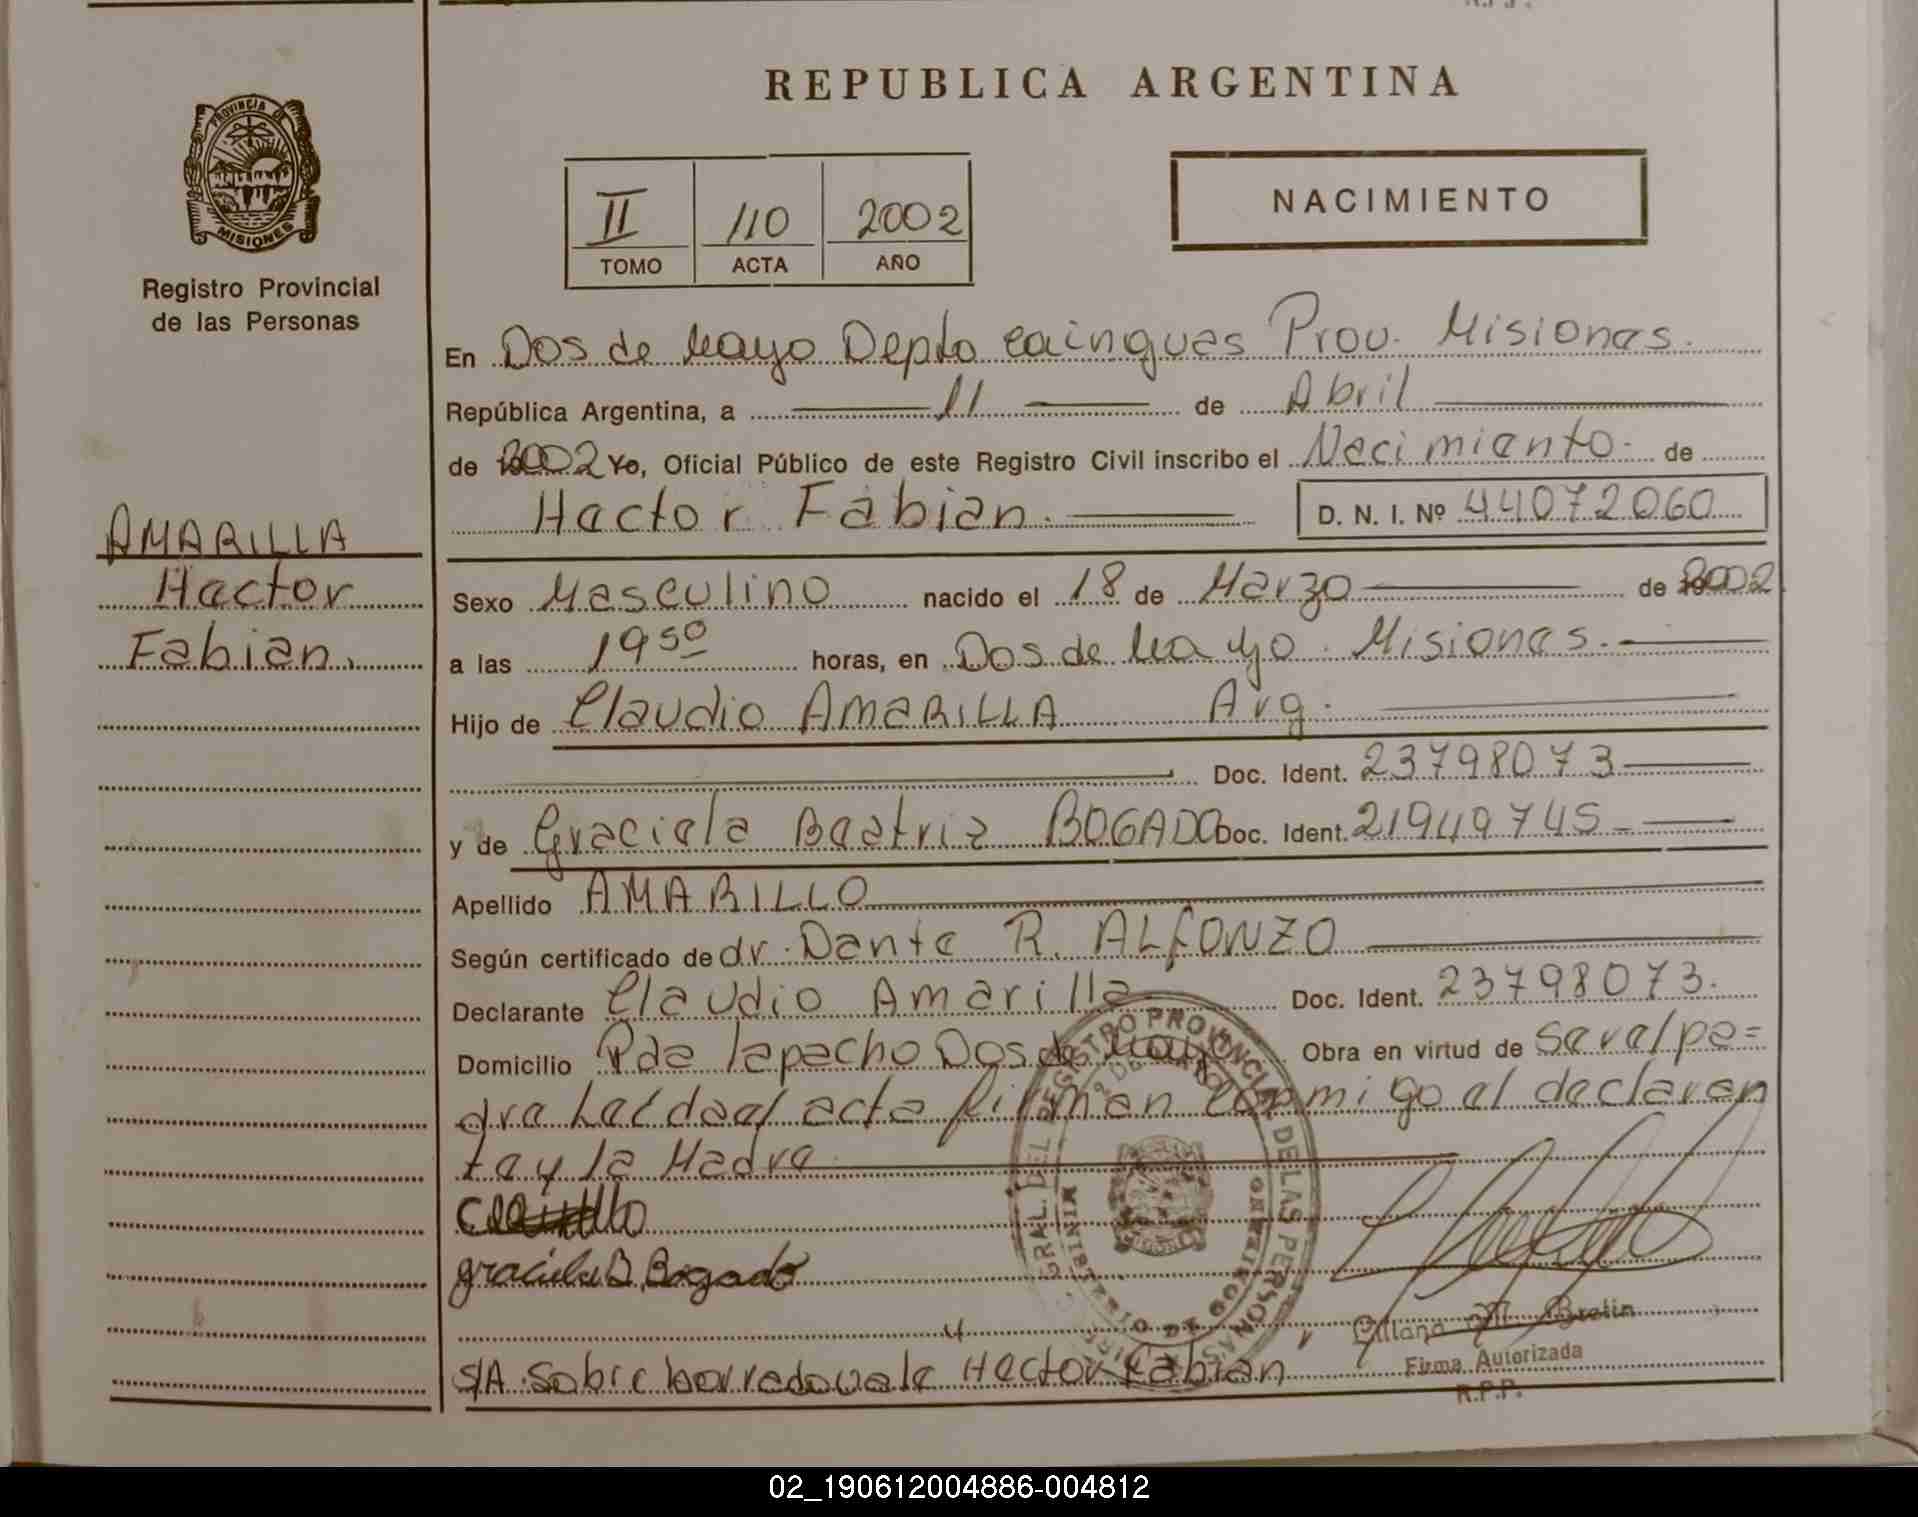 REPUBLICA ARGENTINA
PROVINCIA DE
MISIONES
Registro Provincial
de las Personas
II 110 2002
TOMO ACTA AÑO
NACIMIENTO
En Dos de Mayo Depto Cainguas Prov. Misiones.
República Argentina, a 11 de Abril
de 2002 Yo, Oficial Público de este Registro Civil inscribo el Nacimiento de
Hector Fabian. D. N. I. Nº 44072060
AMARILLA
Hector
Fabian.
Sexo Masculino nacido el 18 de Marzo de 2002
a las 19 50 horas, en Dos de Mayo. Misiones.
Hijo de Claudio AMARILLA Arg.
Doc. Ident. 23798073
y de Graciela Beatriz BOGADO Doc. Ident. 21949745
Apellido AMARILLO
Según certificado de dr. Dante R. ALFONZO
Declarante Claudio Amarilla Doc. Ident. 23798073.
Domicilio Pda lapacho Dos de Mayo Obra en virtud de ser el pa=
dre Leida el acta firman conmigo el declaran
te y la Madre
graciela B. Bogado
S/A. Sobre borrado vale Hector Fabian
REGISTRO PROVINCIAL DE LAS PERSONAS
MINISTERIO DE GOBIERNO
MISIONES
Brelin
Firma Autorizada
R.P.P.
02_190612004886-004812